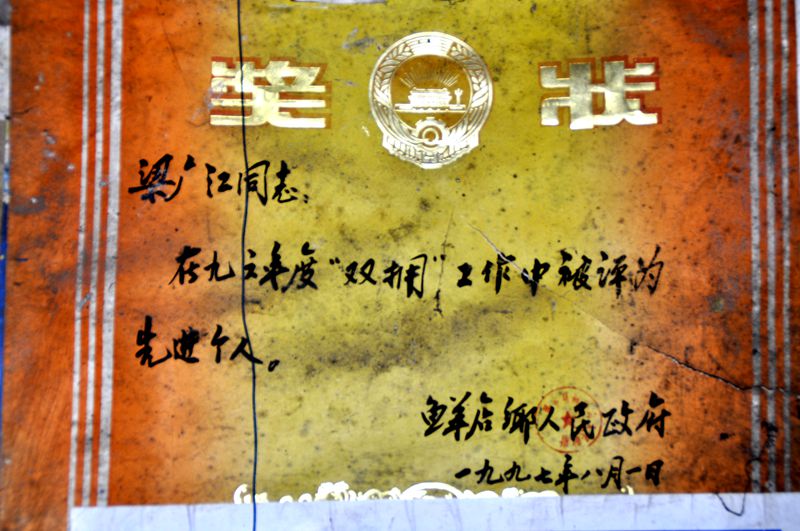 奖 状
梁广江同志：
在九六年度“双拥”工作中被评为
先进个人。
鲜店乡人民政府
一九九七年八月一日